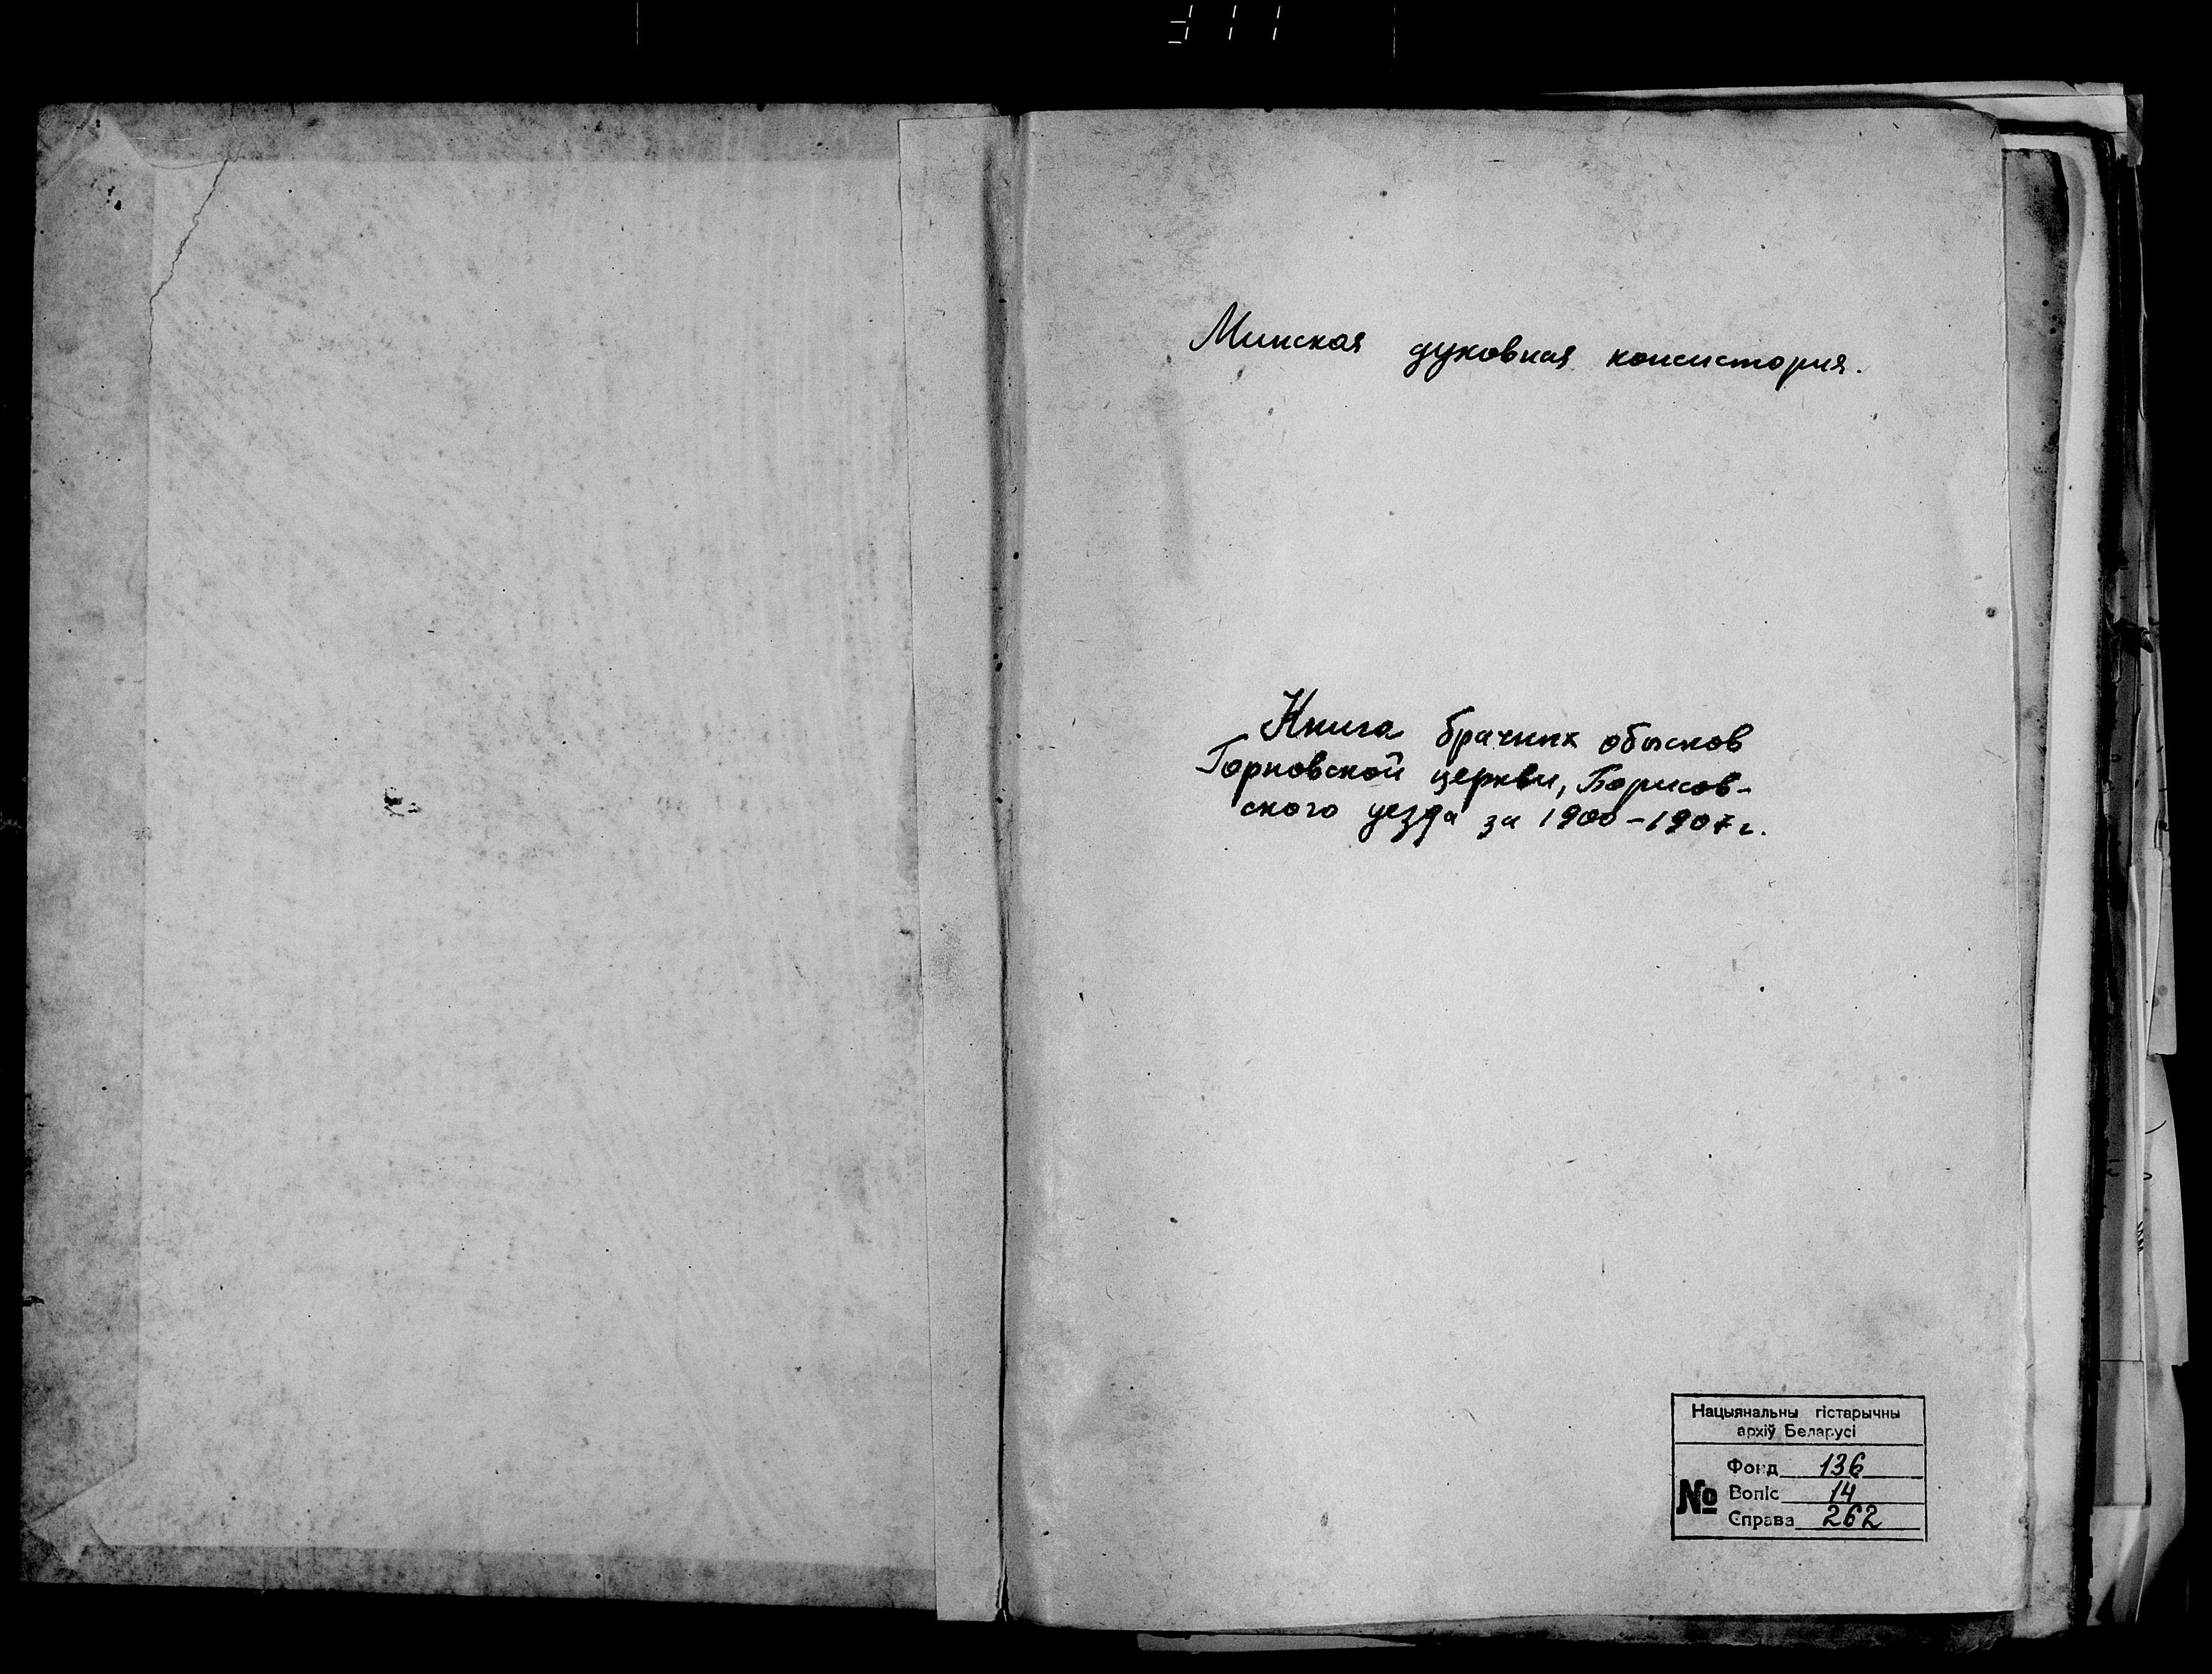 Минская духовная консистория.
Книга брачных обысков
Горновской церкви, Борисов-
ского уезда за 1900-1907г.
Нацыянальны гістарычны
архіў Беларусі
Фонд 136
№ Вопіс 14
Справа 262